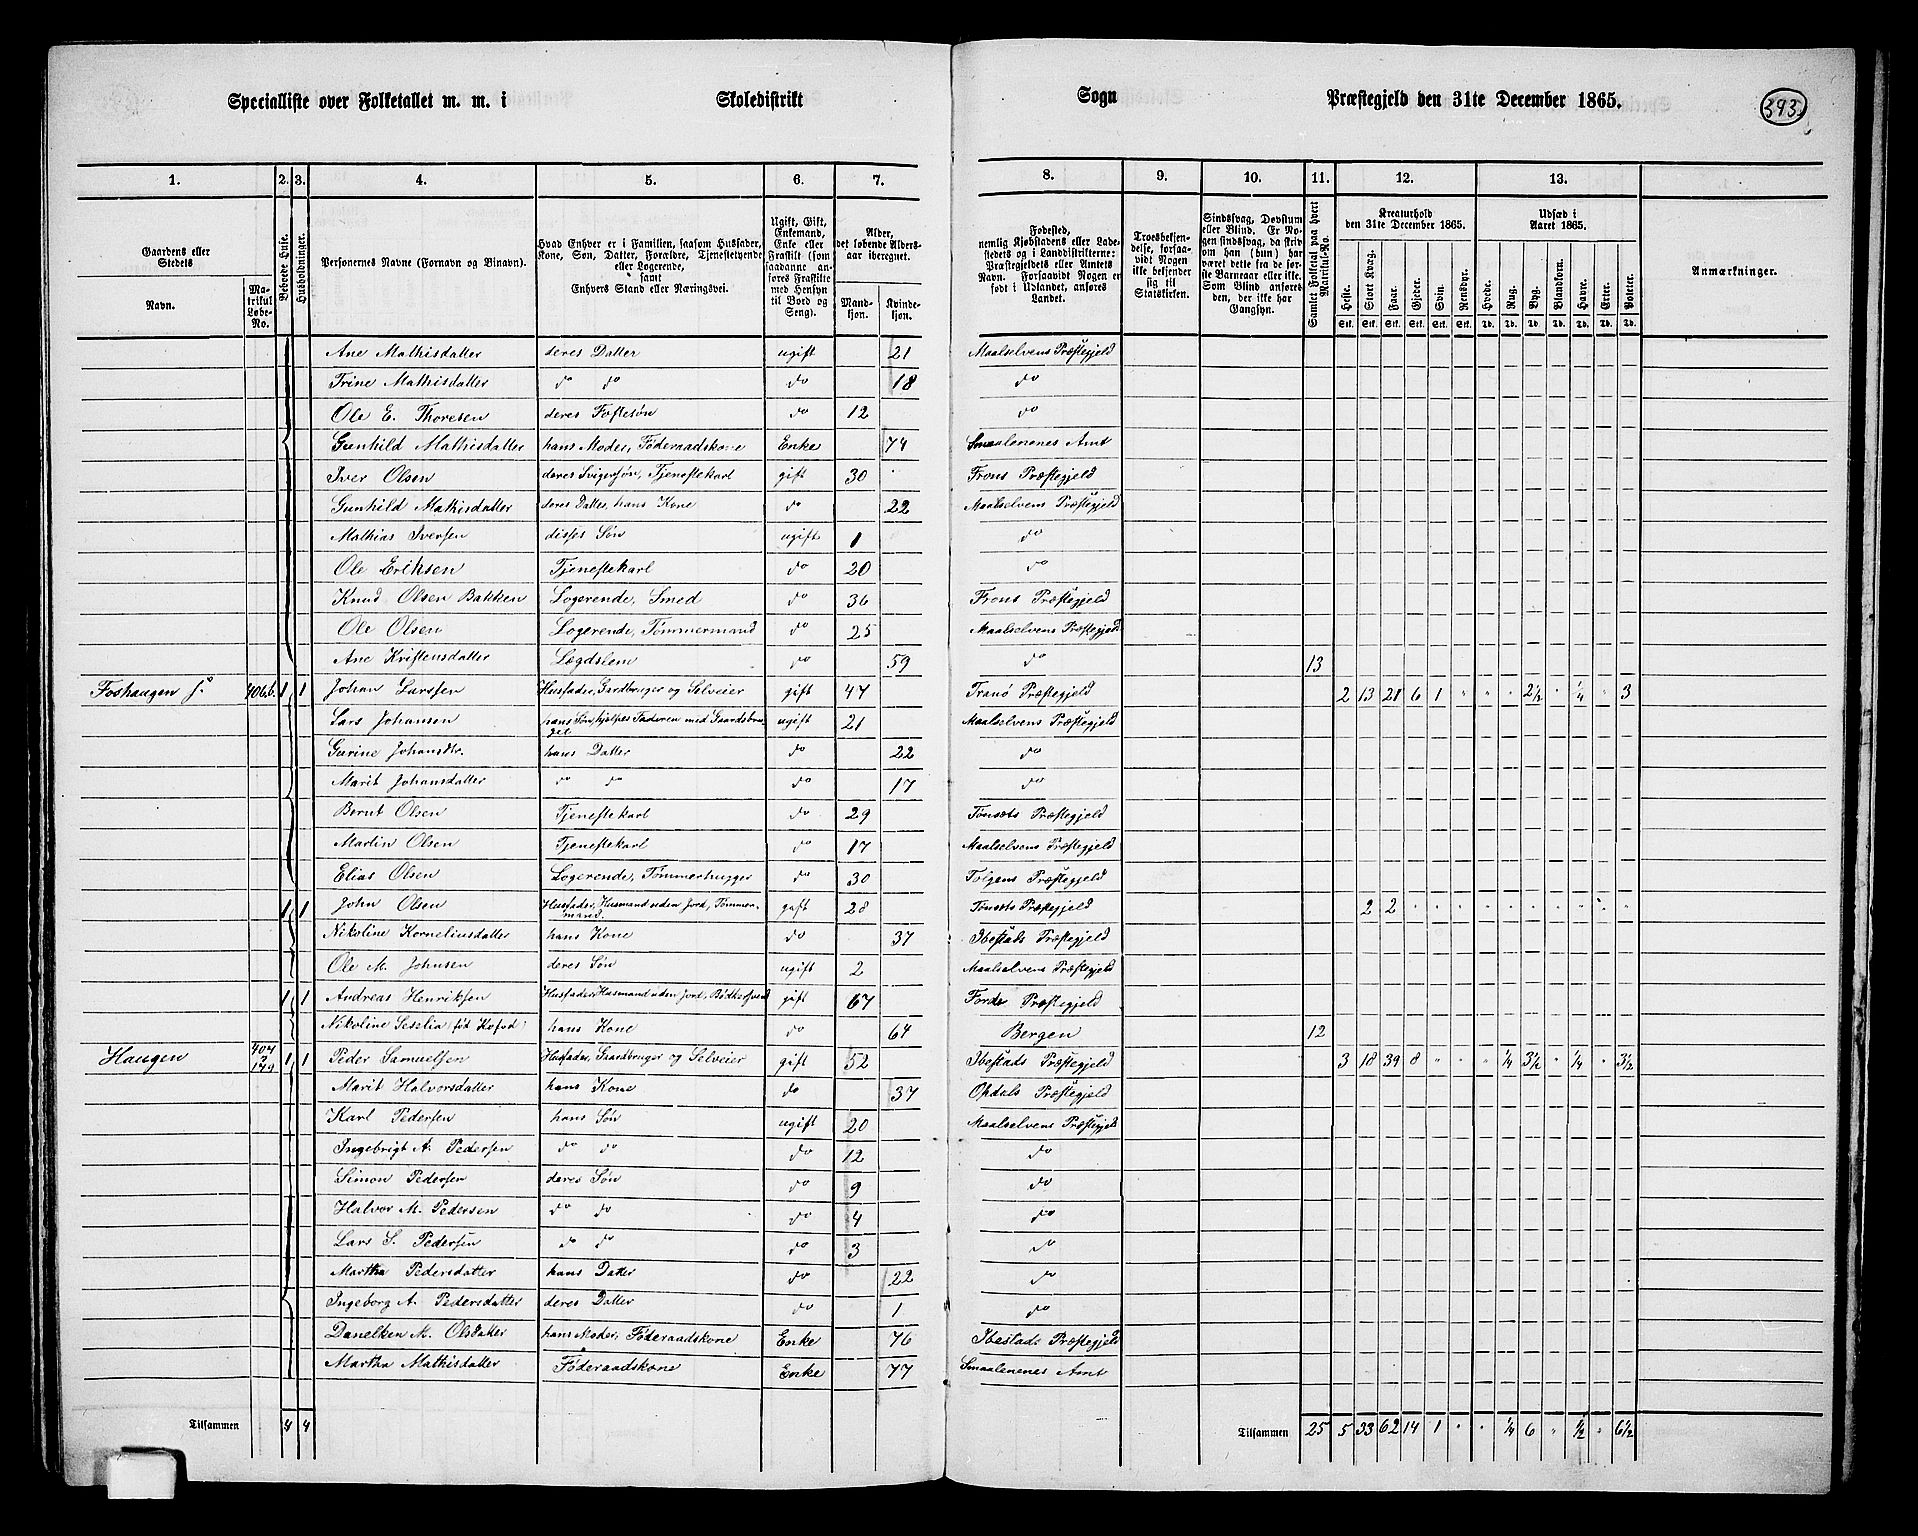 Specialliste over Folketallet m. m. i Skoledistrikt Sogn Præstegjeld den 31te December 1865. 393.
1. 2. 3. 4. 5. 6. 7. 8. 9. 10. 11. 12. 13.
Gaardens eller Stedets Navn. Matrikul Løbe-No. Beboede Huse. Husholdninger. Personernes Navne (Fornavn og Binavn). Hvad Enhver er i Familien, saasom Husfader, Kone, Søn, Datter, Forældre, Tjenestetyende eller Logerende, samt Enhvers Stand eller Næringsvei. Ugift, Gift, Enkemand, Enke eller Fraskilt (som saadanne anføres Fraskilte med Hensyn til Bord og Seng). Alder, det løbende Alders-aar iberegnet. Mand-kjøn. Kvinde-kjøn.
Fødested, nemlig Kjøbstadens eller Ladestedets og i Landdistrikterne: Præstegjeldets eller Amtets Navn. Forsaavidt Nogen er født i Udlandet, anføres Landet. Troesbekjendelse, forsaavidt Nogen ikke bekjender sig til Statskirken. Sindssvag, Døvstum eller Blind. Er Nogen sindssvag, da skrives om han (hun) har været dette fra de første Barneaar eller ikke. Som Blind anføres den, der ikke har Gangsyn. Samlet Folketal paa hvert Matrikul-No. Kreaturhold den 31te December 1865. Udsæd i Aaret 1865. Anmærkninger.
Heste. Stort Kvæg. Faar. Gjeder. Svin. Rensdyr. Hvede. Rug. Byg. Blandkorn. Havre. Erter. Poteter.
Stk. Stk. Stk. Stk. Stk. Stk. Td. Td. Td. Td. Td. Td. Td.
Ane Mathisdatter deres Datter ugift 21 Maalselvens Præstegjeld
Trine Mathisdatter do do do 18 do
Ole E. Thoresen deres Fostesøn do 12 do
Gunhild Mathisdatter hans Moder, Føderaadskone Enke 74 Smaalenenes Amt
Iver Olsen deres Svigersøn, Tjenestekarl gift 30 Frons Præstegjeld
Gunhild Mathisdatter deres Datter, hans Kone do 22 Maalselvens Præstegjeld
Mathias Iversen disses Søn ugift 1 do
Ole Eriksen Tjenestekarl do 20 do
Knud Olsen Bakken Logerende, Smed do 36 Frons Præstegjeld
Ole Olsen Logerende, Tømmermand do 25 Maalselvens Præstegjeld
Ane Kristensdatter Lægdslem do 59 do 13
Foshaugen 406b. 1 1 Johan Larssen Husfader, Gardbruger og Selveier gift 47 Tranø Præstegjeld 2 13 21 6 1 " " " 2½ " ¼ " 3
Lars Johansen hans Søn, hjelper Faderen med Gaardsbruget ugift 21 Maalselvens Præstegjeld
Gurine Johansdtr. hans Datter do 22 do
Marit Johansdatter do do do 17 do
Bernt Olsen Tjenestekarl do 29 Tønsets Præstegjeld
Martin Olsen Tjenestekarl do 17 Maalselvens Præstegjeld
Elias Olsen Logerende, Tømmerhugger do 30 Tolgens Præstegjeld
1 1 John Olsen Husfader, Husmand uden Jord, Tømmermand. gift 28 Tønsets Præstegjeld 2 2 " " " " " " " " " "
Nikoline Korneliusdatter hans Kone do 37 Ibestads Præstegjeld
Ole M. Johnsen deres Søn ugift 2 Maalselvens Præstegjeld
1 1 Andreas Henriksen Husfader, Husmand uden Jord, Bødkersvend gift 67 Førde Præstegjeld
Nikoline Seselia (fød Kofod) hans Kone do 64 Bergen 12
Haugen 407 1 1 Peder Samuelsen Husfader, Gaardbruger og Selveier gift 52 Ibestads Præstegjeld 3 18 39 8 " " " ¼ 3½ " ¼ " 3½
Marit Halvorsdatter hans Kone do 37 Opdals Præstegjeld
Karl Pedersen hans Søn ugift 20 Maalselvens Præstegjeld
Ingebrigt A. Pedersen do do do 12 do
Simon Pedersen deres Søn do 9 do
Halvor M. Pedersen do do do 4 do
Lars S. Pedersen do do do 3 do
Martha Pedersdatter hans Datter do 22 do
Ingeborg A. Pedersdatter deres Datter do 1 do
Danelken M. Olsdatter hans Moder, Føderaadskone Enke 76 Ibestads Præstegjeld
Martha Mathisdatter Føderaadskone Enke 77 Smaalenenes Amt
Tilsammen 4 4 Tilsammen 25 5 33 62 14 1 " " ¼ 6 " ½ " 6½